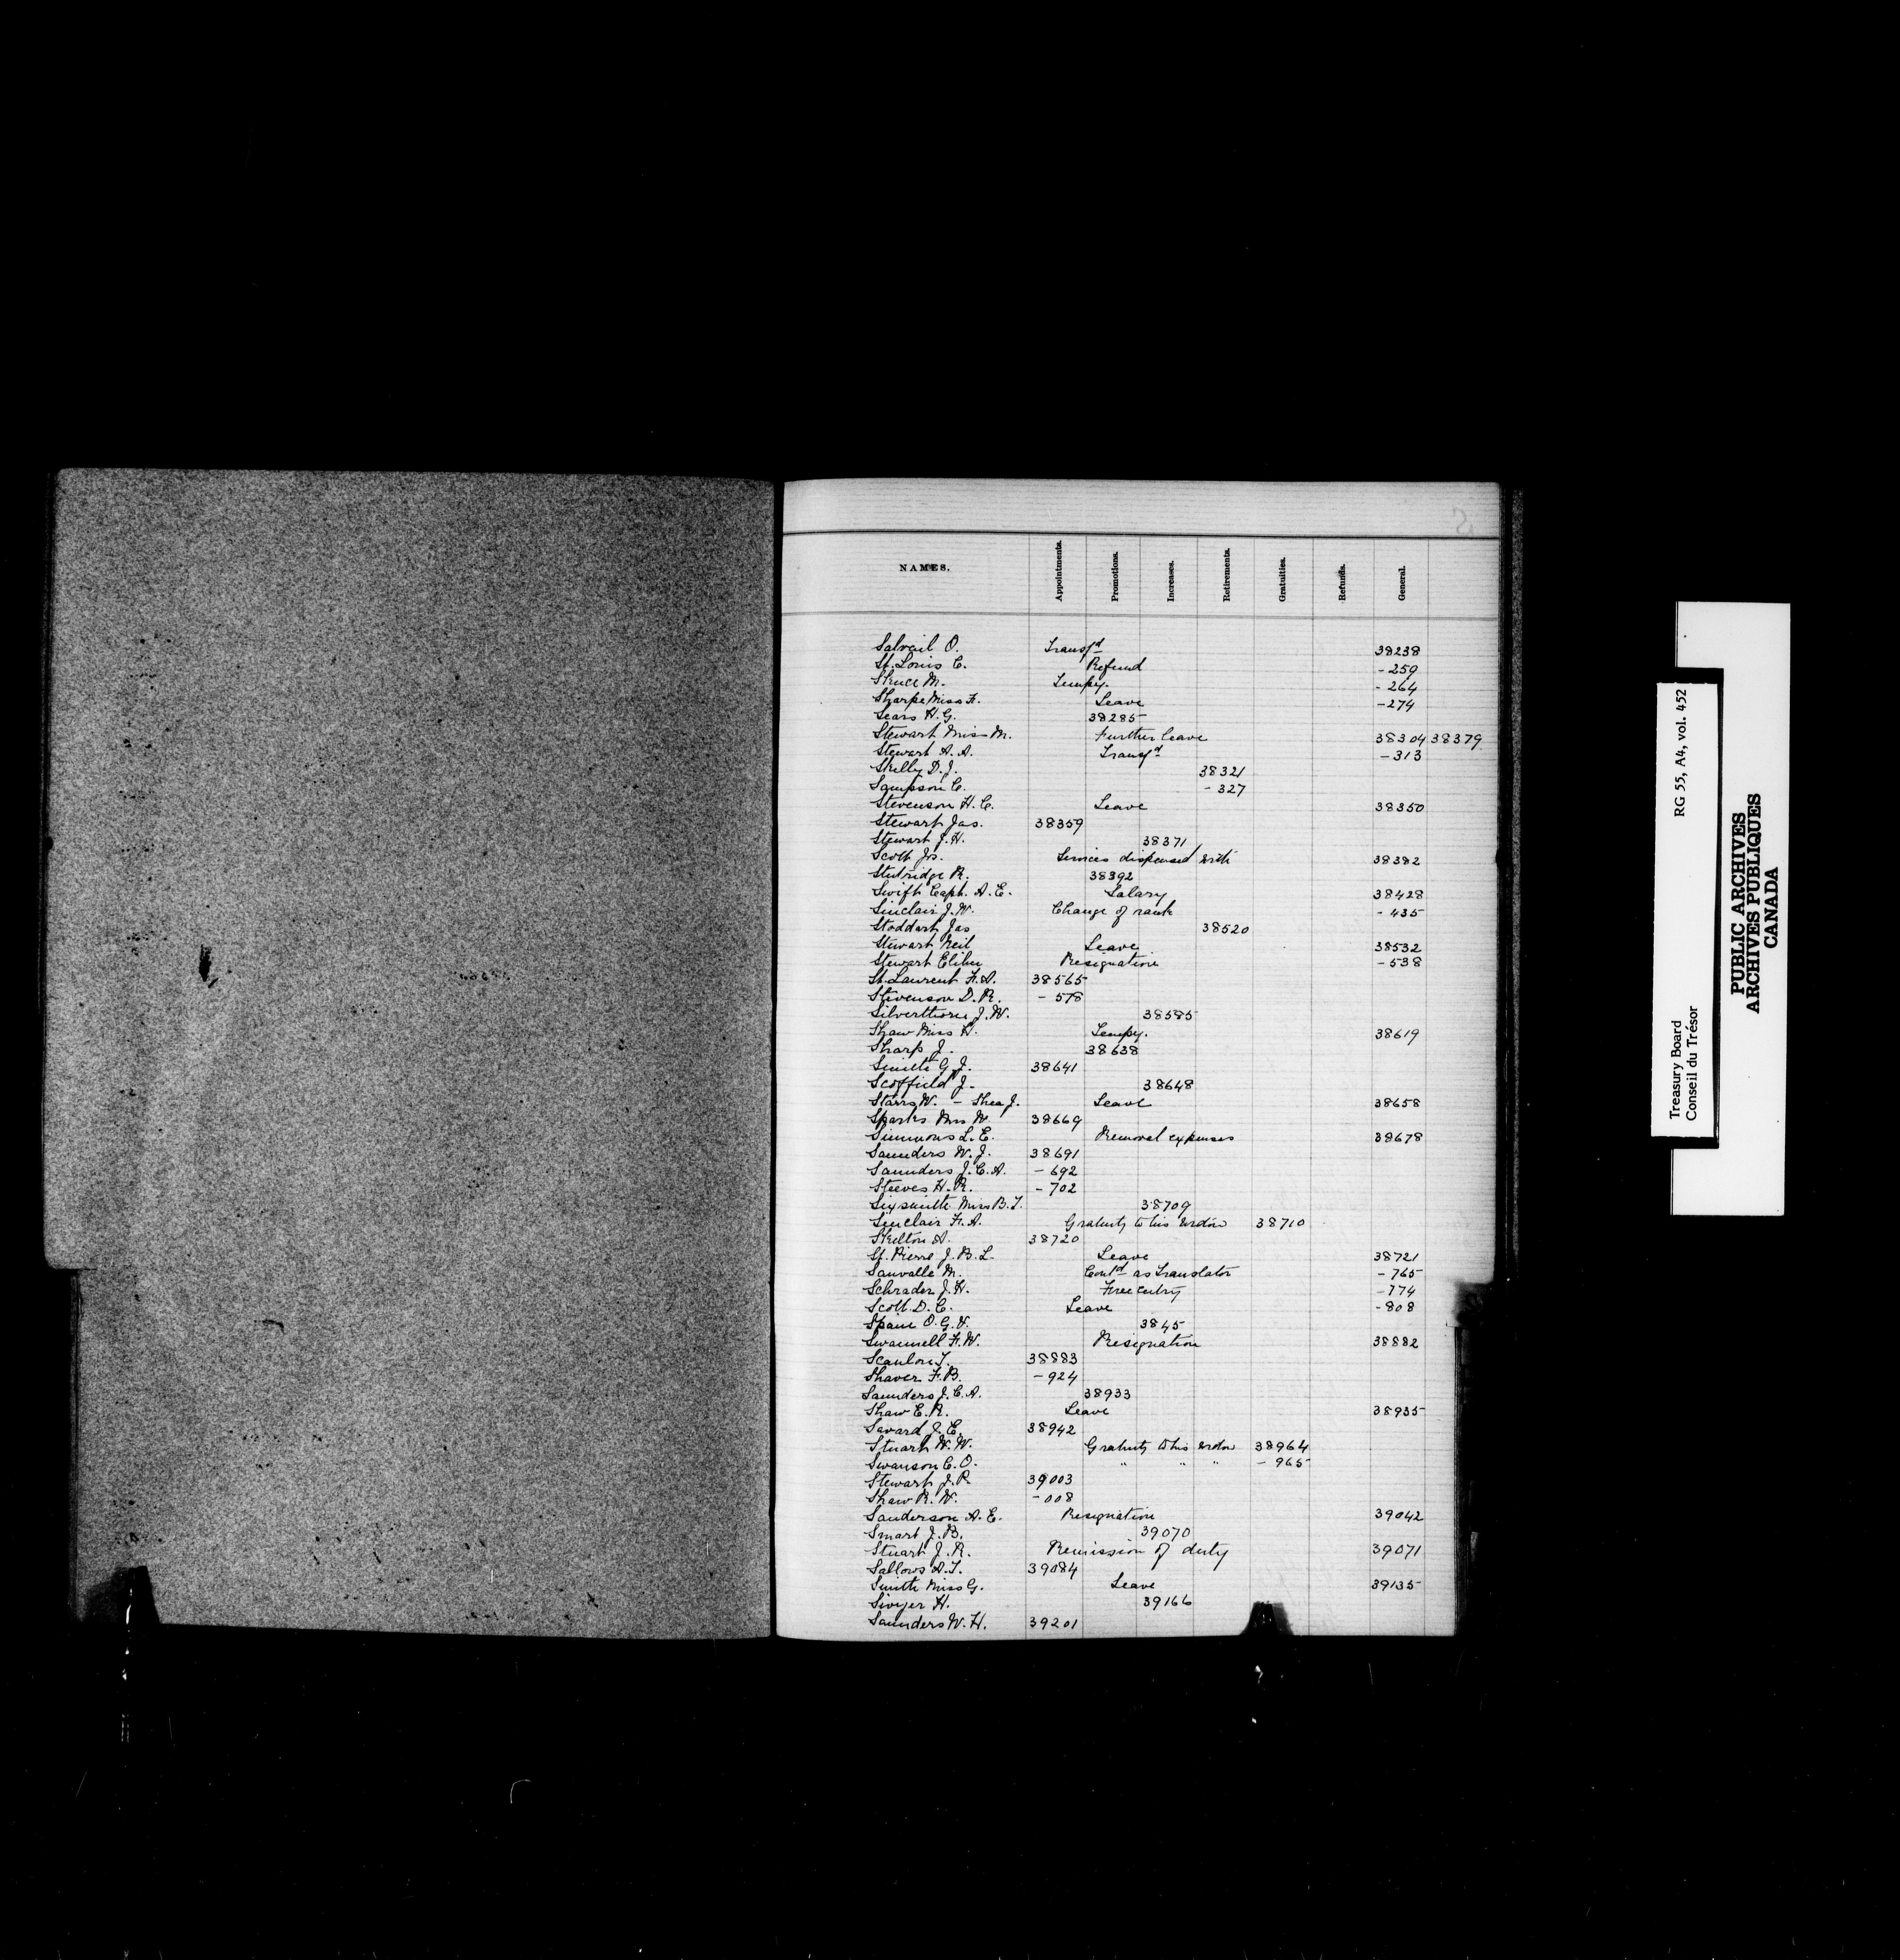 NAMES. Appointments. Promotions. Increases. Retirements. Gratuities. Refunds. General.
Salvail O. Transfd 38238
St. Louis C. Refund - 259
M. Tempy. - 264
Sharpe Miss F. Leave - 274
Sears H. G. 38285
Stewart Miss M. Further leave 38304 38379
Stewart A. A. Transfd - 313
Skelly D. J. 38321
Sampson C. - 327
Stevenson H. C. Leave 38350
Stewart Jas. 38359
Stewart J. H. 38371
Scott Jos. Services dispensed with 38382
R. 38392
Swift Capt. A. E. Salary 38428
Sinclair J. W. Change of rank - 435
Stoddart Jas 38520
Stewart Neil Leave 38532
Stewart Elihu Resignation - 538
St. Laurent F. A. 38565
Stevenson D. R. - 578
Silverthorn J. W. 38585
Shaw Miss H. Tempy. 38619
Sharp J. 38638
Smith G. J. 38641
Scoffield J. 38648
Starrs W. - Shea J. Leave 38658
Sparks Mrs W. 38669
Simmons L. E. Removal expenses 38678
Saunders W. J. 38691
Saunders J. C. A. - 692
Steeves H. R. - 702
Sixsmith Miss B. T. 38709
Sinclair F. A. Gratuity to his widow 38710
Skelton A. 38720
St. Pierre J. B. L. Leave 38721
Sauvalle M. Contd as Translator - 765
Schrader J. H. Free entry - 774
Scott D. C. Leave - 808
Spain O. G. V. 3845
Swannell F. W. Resignation 38882
Scanlon T. 38883
Shaver F. B. - 924
Saunders J. C. A. 38933
Shaw E. R. Leave 38935
Savard J. E. 38942
Stuart W. W. Gratuity to his widow 38964
Swanson C. O. " " " - 965
Stewart J. P. 39003
Shaw R. W. - 008
Sanderson A. E. Resignation 39042
Smart J. B. 39070
Stuart J. R. Remission of duty 39071
Sallows A. T. 39084
Smith Miss G. Leave 39135
H. 39166
Saunders W. H. 39201
Treasury Board RG 55, A4, vol. 452
Conseil du Trésor
PUBLIC ARCHIVES
ARCHIVES PUBLIQUES
CANADA